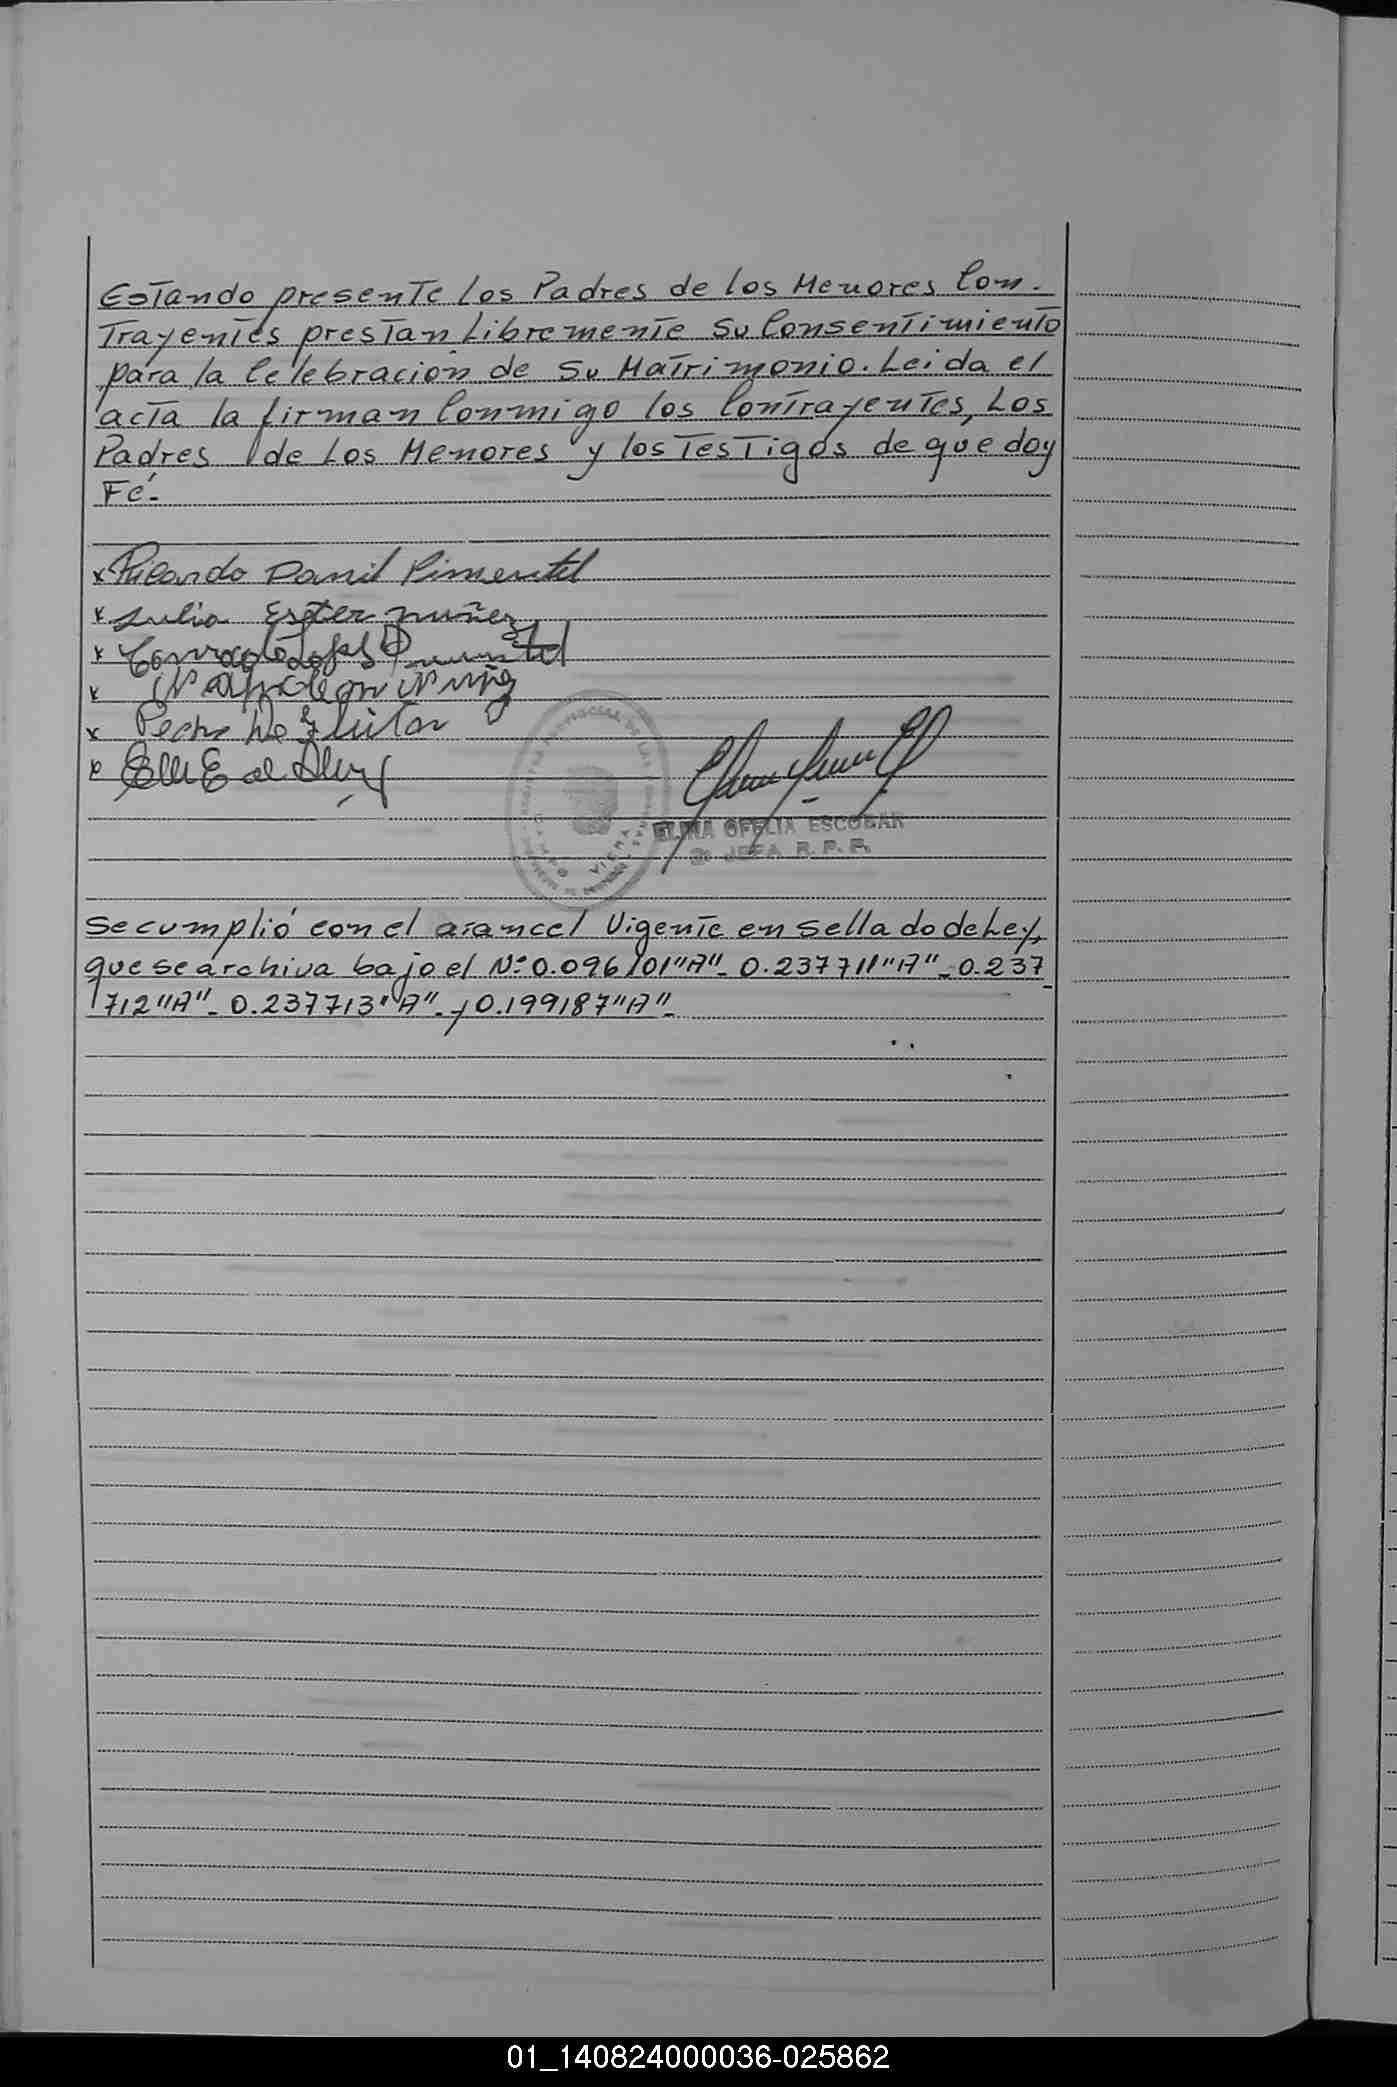 Estando presente los Padres de los Menores Con-
Trayentes prestan libremente su Consentimiento
para la Celebración de su Matrimonio. Leida el
acta la firman Conmigo los Contrayentes, Los
Padres de Los Menores y los Testigos de que doy
Fé.-
x Ricardo Daniel Pimentel
x Julia Ester Nuñez
x Pimentel
x Napoleon Nuñez
x Pedro
x
ELINA OFELIA ESCOBAR
JEFA R. P. P.
Se cumplió con el arancel Vigente en sellado de Ley,
que se archiva bajo el Nº 0.096101"A"- 0.237711"A"- 0.237
712"A"- 0.237713"A"- y 0.199187"A"-
01_140824000036-025862